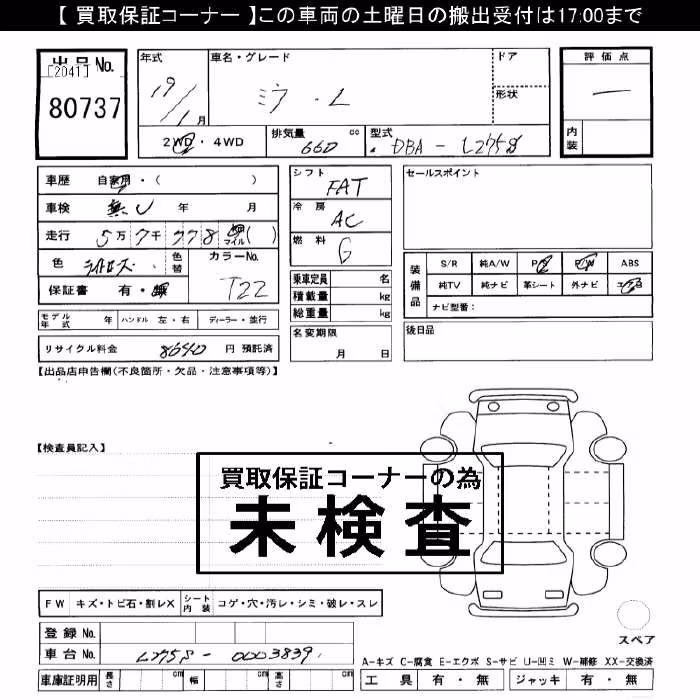 【 買取保証コーナー 】この車両の土曜日の搬出受付は17:00まで
出品 No.
[2041]
80737
年式
19/1月
車名・グレード
ミラ・L
ドア
形状
評価点
―
内装
2WD・4WD
排気量 660 cc
型式 DBA - L275S
車歴 自家用・( )
車検 無し 年 月
走行 5万7千778 マイル ( )
色 ライトローズ 色替 カラーNo. T22
保証書 有・無
シフト FAT
冷房 AC
燃料 G
乗車定員 名
積載量 kg
総重量 kg
名変期限
月 日
セールスポイント
装備品 S/R 純A/W P/S P/W ABS
純TV 純ナビ 革シート 外ナビ エアB
ナビ型番:
後日品
モデル年式 年 ハンドル 左・右 ディーラー・並行
リサイクル料金 8640 円 預託済
【出品店申告欄(不良箇所・欠品・注意事項等)】
【検査員記入】
買取保証コーナーの為
未検査
FW キズ・トビ石・割レX シート内装 コゲ・穴・汚レ・シミ・破レ・スレ
登録 No.
車台 No. L275S - 0003839
車庫証明用 長さ cm 幅 cm 高さ cm
スペア
A-キズ C-腐食 E-エクボ S-サビ U-凹ミ W-補修 XX-交換済
工具 有・無 ジャッキ 有・無